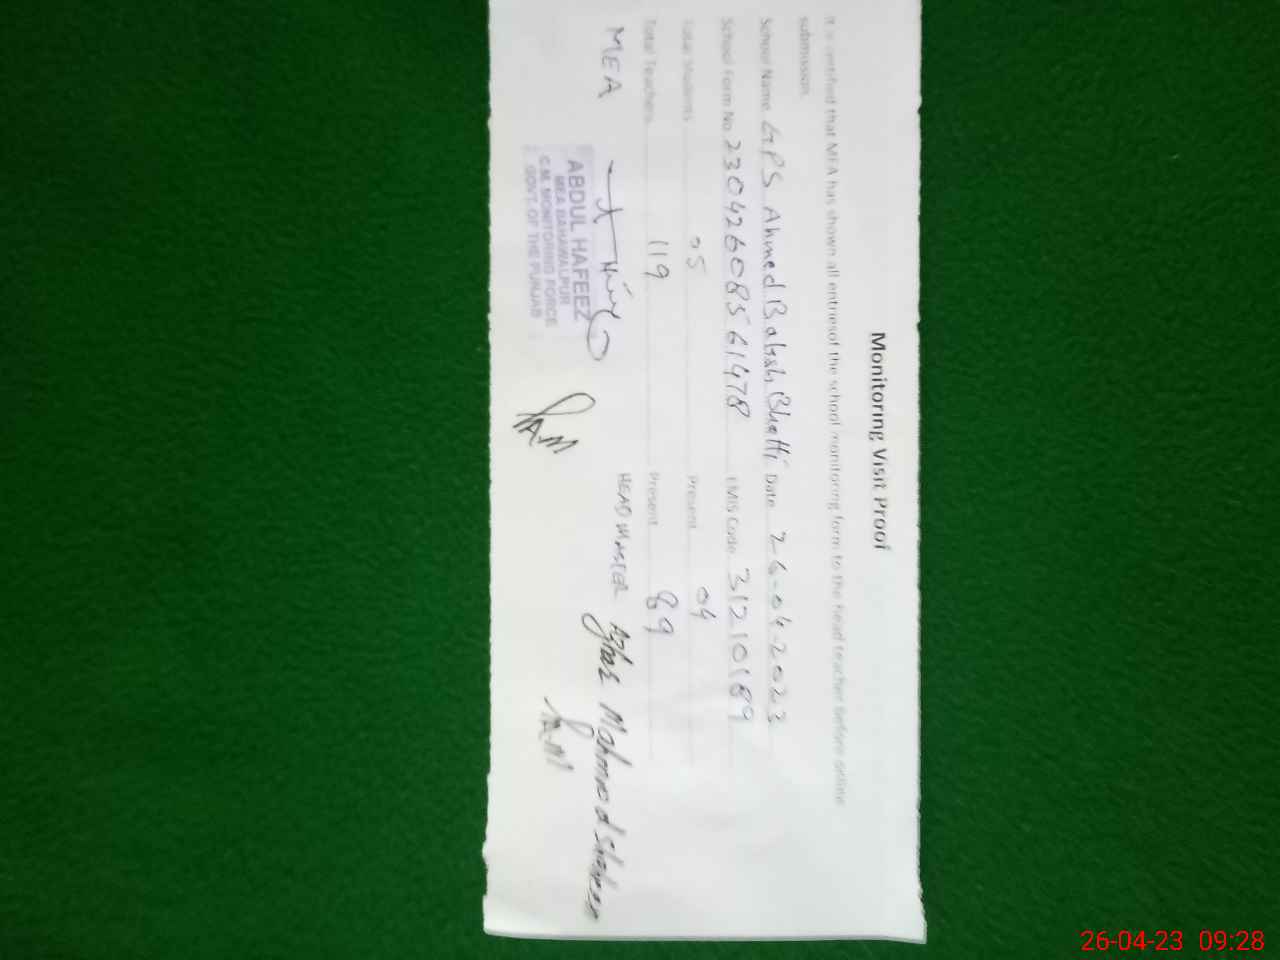 Monitoring Visit Proof
It is certified that MEA has shown all entries of the school monitoring form to the head teacher before online
submission.
School Name GPS Ahmed Bakhsh Bhatti Date 26-04-2023
School Form No. 23042608561478 EMIS Code 31210189
Total Students 05 Present 04
Total Teachers 119 Present 89
MEA HEAD MASTER Azhar Mahmood
ABDUL HAFEEZ
MEA BAHAWALPUR
C.M. MONITORING FORCE
GOVT. OF THE PUNJAB
26-04-23 09:28